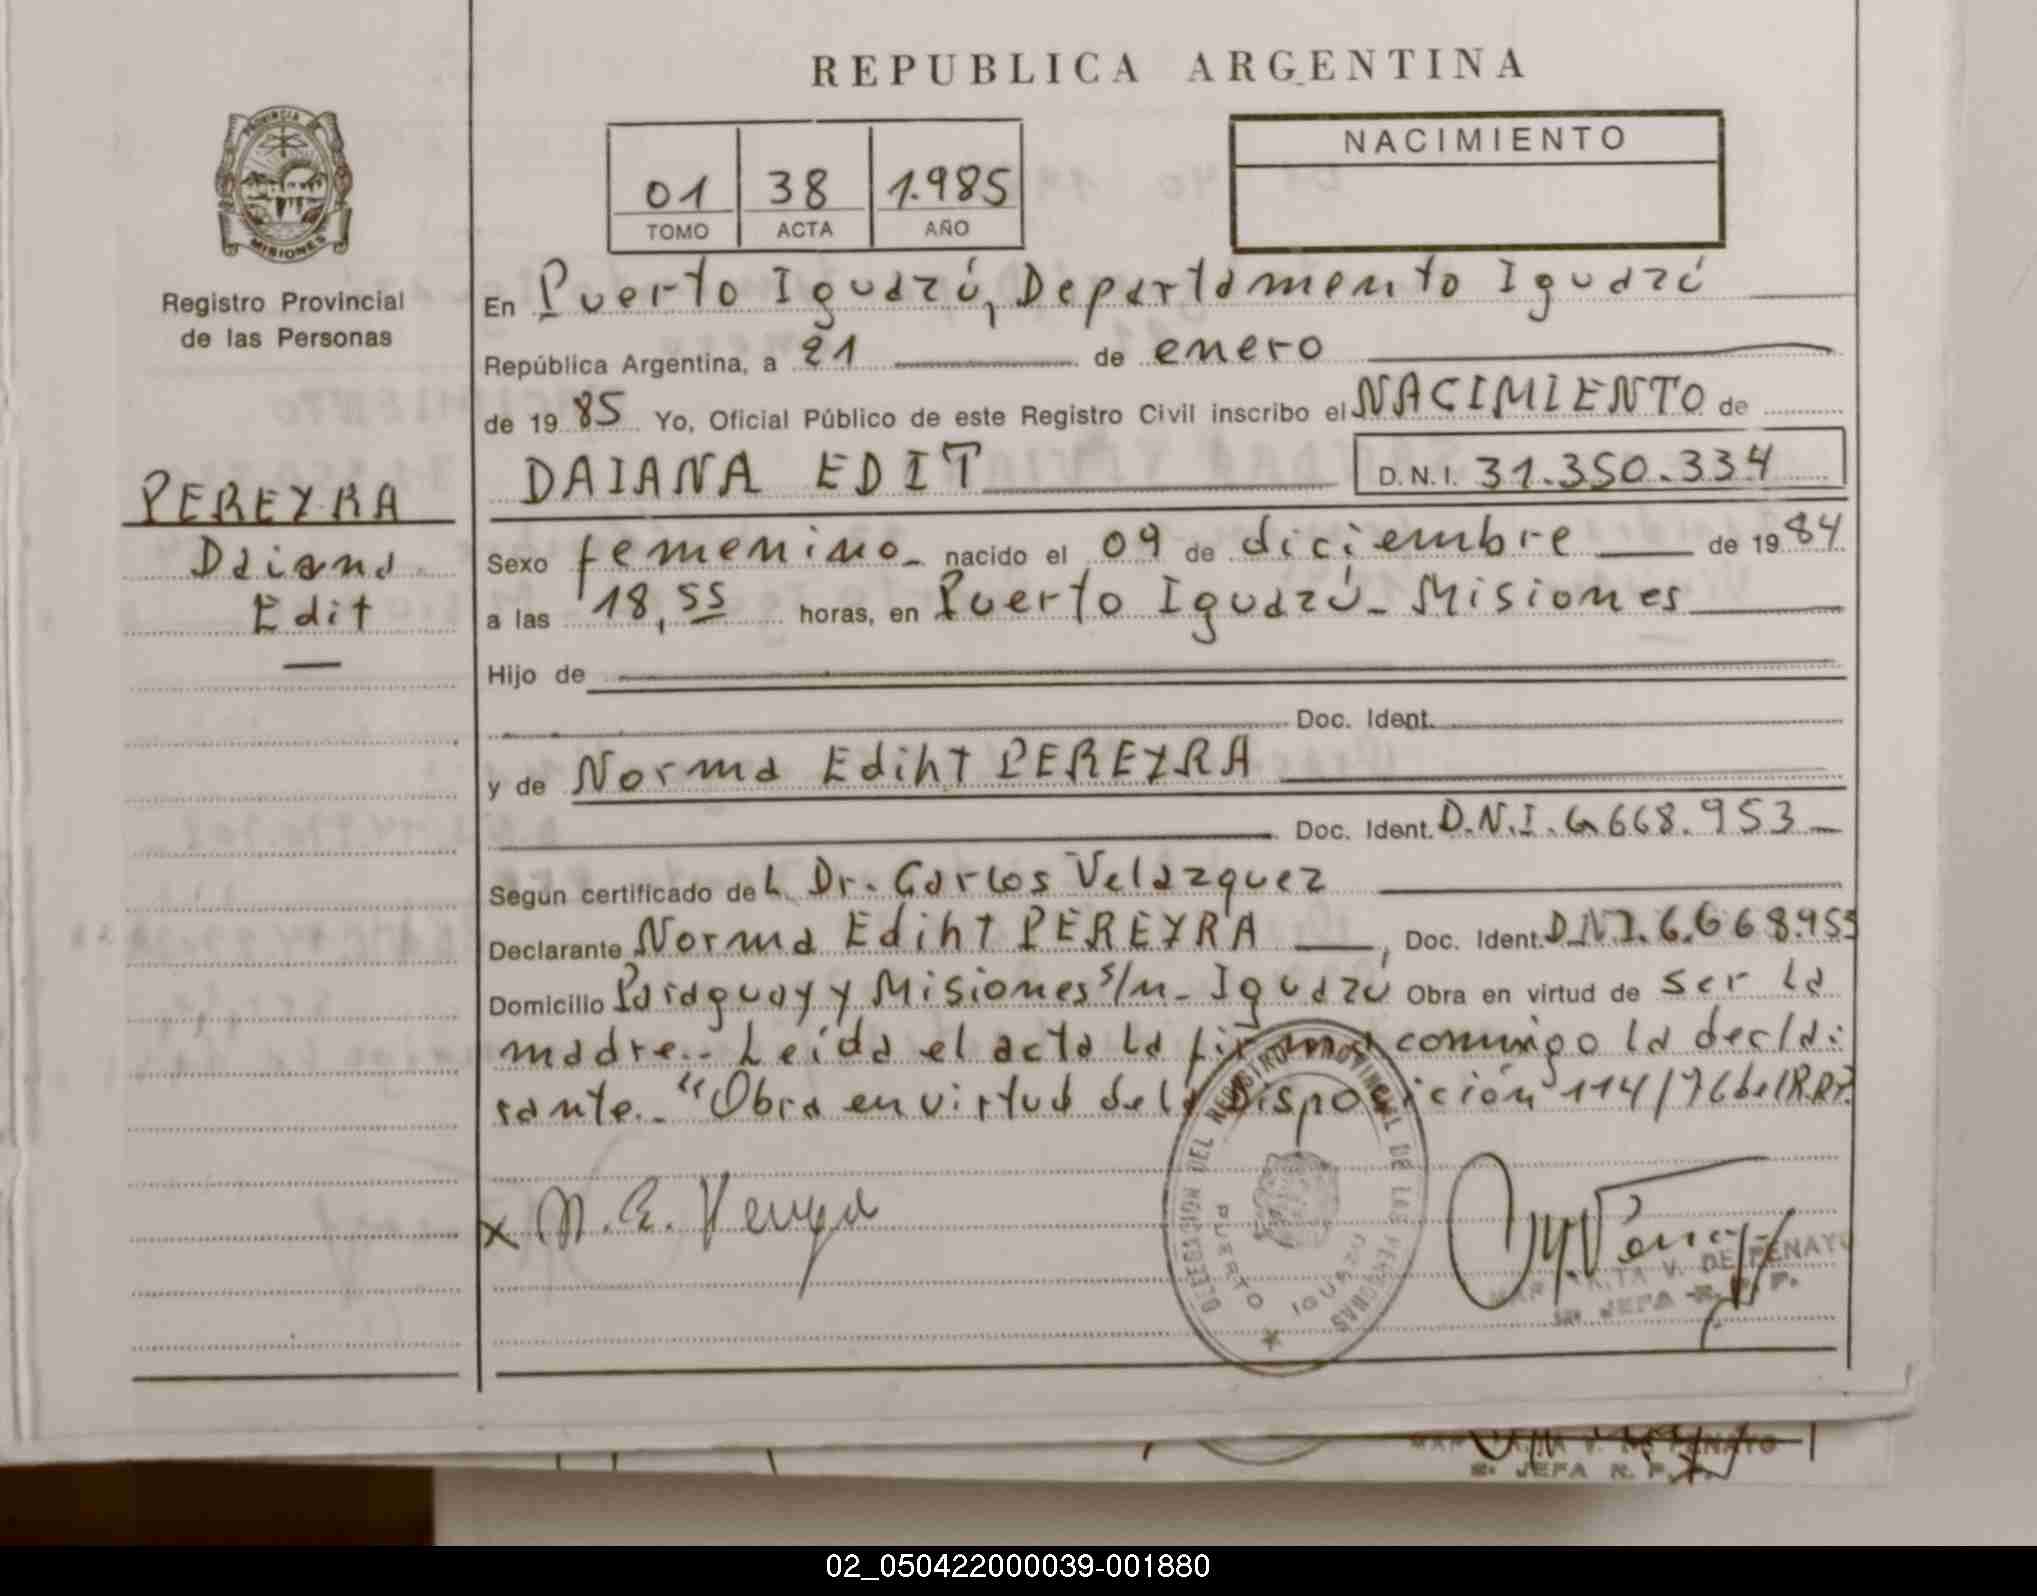 REPUBLICA ARGENTINA
PROVINCIA DE
MISIONES
Registro Provincial
de las Personas
PEREYRA
Daiana
Edit
01 38 1.985
TOMO ACTA AÑO
NACIMIENTO
En Puerto Iguazú, Departamento Iguazú
República Argentina, a 21 de enero
de 19 85 Yo, Oficial Público de este Registro Civil inscribo el NACIMIENTO de
DAIANA EDIT D.N.I. 31.350.334
Sexo femenino nacido el 09 de diciembre de 19 84
a las 18,55 horas, en Puerto Iguazú - Misiones
Hijo de
Doc. Ident.
y de Norma Ediht PEREYRA
Doc. Ident. D.N.I. 6.668.953
Según certificado del Dr. Carlos Velazquez
Declarante Norma Ediht PEREYRA, Doc. Ident. D.N.I. 6.668.953
Domicilio Paraguay y Misiones s/n - Iguazú Obra en virtud de ser la
madre.- Leída el acta la firma conmigo la decla-
rante.- "Obra en virtud de la Disposición 114/76 del R.P.P.
x N. E.
DELEGACION DEL REGISTRO PROVINCIAL DE LAS PERSONAS
PUERTO IGUAZU
V. DE PENAYO
JEFA R. P. P.
V. DE PENAYO
JEFA R. P.
02_050422000039-001880